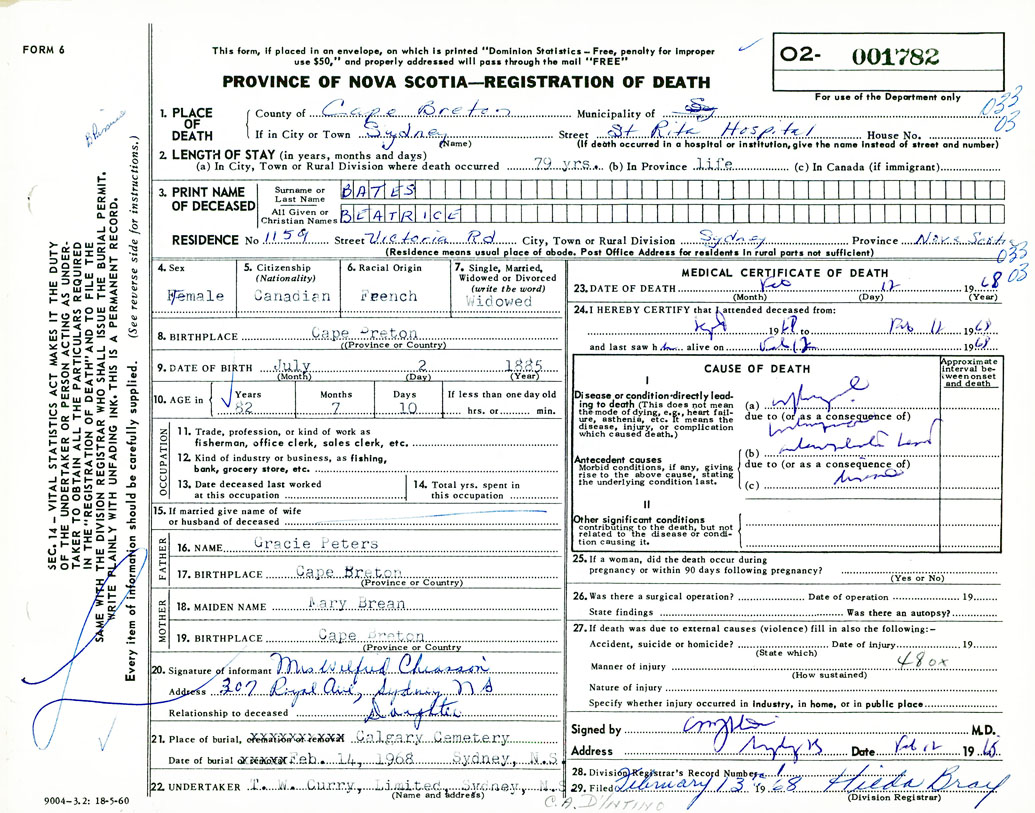 FORM 6
This form, if placed in an envelope, on which is printed "Dominion Statistics – Free, penalty for improper
use $50," and properly addressed will pass through the mail "FREE"
O2- 001782
For use of the Department only
PROVINCE OF NOVA SCOTIA—REGISTRATION OF DEATH
033
03
1. PLACE OF DEATH
County of Cape Breton Municipality of
If in City or Town Sydney Street St Rita Hospital House No.
(Name) (If death occurred in a hospital or institution, give the name instead of street and number)
2. LENGTH OF STAY (in years, months and days)
(a) In City, Town or Rural Division where death occurred 79 yrs. (b) In Province life (c) In Canada (if immigrant)
3. PRINT NAME OF DECEASED
Surname or Last Name BATES
All Given or Christian Names BEATRICE
RESIDENCE No 1159 Street Victoria Rd City, Town or Rural Division Sydney Province Nova Scotia
(Residence means usual place of abode. Post Office Address for residents in rural parts not sufficient)
033
03
4. Sex
Female
5. Citizenship
(Nationality)
Canadian
6. Racial Origin
French
7. Single, Married,
Widowed or Divorced
(write the word)
Widowed
8. BIRTHPLACE Cape Breton
(Province or Country)
9. DATE OF BIRTH July 2 1885
(Month) (Day) (Year)
10. AGE in
Years Months Days If less than one day old
82 7 10 hrs. or min.
OCCUPATION
11. Trade, profession, or kind of work as
fisherman, office clerk, sales clerk, etc.
12. Kind of industry or business, as fishing,
bank, grocery store, etc.
13. Date deceased last worked
at this occupation
14. Total yrs. spent in
this occupation
15. If married give name of wife
or husband of deceased
FATHER
16. NAME Gracie Peters
17. BIRTHPLACE Cape Breton
(Province or Country)
MOTHER
18. MAIDEN NAME Mary Brean
19. BIRTHPLACE Cape Breton
(Province or Country)
20. Signature of informant Mrs Wilfred Chiasson
Address 307 Royal Ave, Sydney N S
Relationship to deceased Daughter
21. Place of burial, cremation or removal Calgary Cemetery
Date of burial or removal Feb. 14, 1968 Sydney, N.S.
22. UNDERTAKER T. W. Curry, Limited, Sydney, N.S
(Name and address)
C.A. D'INTINO
MEDICAL CERTIFICATE OF DEATH
23. DATE OF DEATH Feb 12 1968
(Month) (Day) (Year)
24. I HEREBY CERTIFY that I attended deceased from:
19 to Feb 12 1968
and last saw h alive on Feb 12 1968
CAUSE OF DEATH
Approximate
interval be-
tween onset
and death
I
Disease or condition directly lead-
ing to death (This does not mean
the mode of dying, e.g., heart fail-
ure, asthenia, etc. It means the
disease, injury, or complication
which caused death.)
(a)
due to (or as a consequence of)
Antecedent causes
Morbid conditions, if any, giving
rise to the above cause, stating
the underlying condition last.
(b)
due to (or as a consequence of)
(c)
II
Other significant conditions
contributing to the death, but not
related to the disease or condi-
tion causing it.
25. If a woman, did the death occur during
pregnancy or within 90 days following pregnancy?
(Yes or No)
26. Was there a surgical operation? Date of operation 19
State findings Was there an autopsy?
27. If death was due to external causes (violence) fill in also the following:–
Accident, suicide or homicide? Date of injury 19
(State which)
480x
Manner of injury
(How sustained)
Nature of injury
Specify whether injury occurred in industry, in home, or in public place
Signed by M.D.
Address Date Feb 12 1968
28. Division Registrar's Record Number
29. Filed February 13 1968 Hilda Bray
(Division Registrar)
SEC. 14 – VITAL STATISTICS ACT MAKES IT THE DUTY
OF THE UNDERTAKER OR PERSON ACTING AS UNDER-
TAKER TO OBTAIN ALL THE PARTICULARS REQUIRED
IN THE "REGISTRATION OF DEATH" AND TO FILE THE
SAME WITH THE DIVISION REGISTRAR WHO SHALL ISSUE THE BURIAL PERMIT.
WRITE PLAINLY WITH UNFADING INK. THIS IS A PERMANENT RECORD.
Every item of information should be carefully supplied. (See reverse side for instructions.)
9004–3.2: 18-5-60